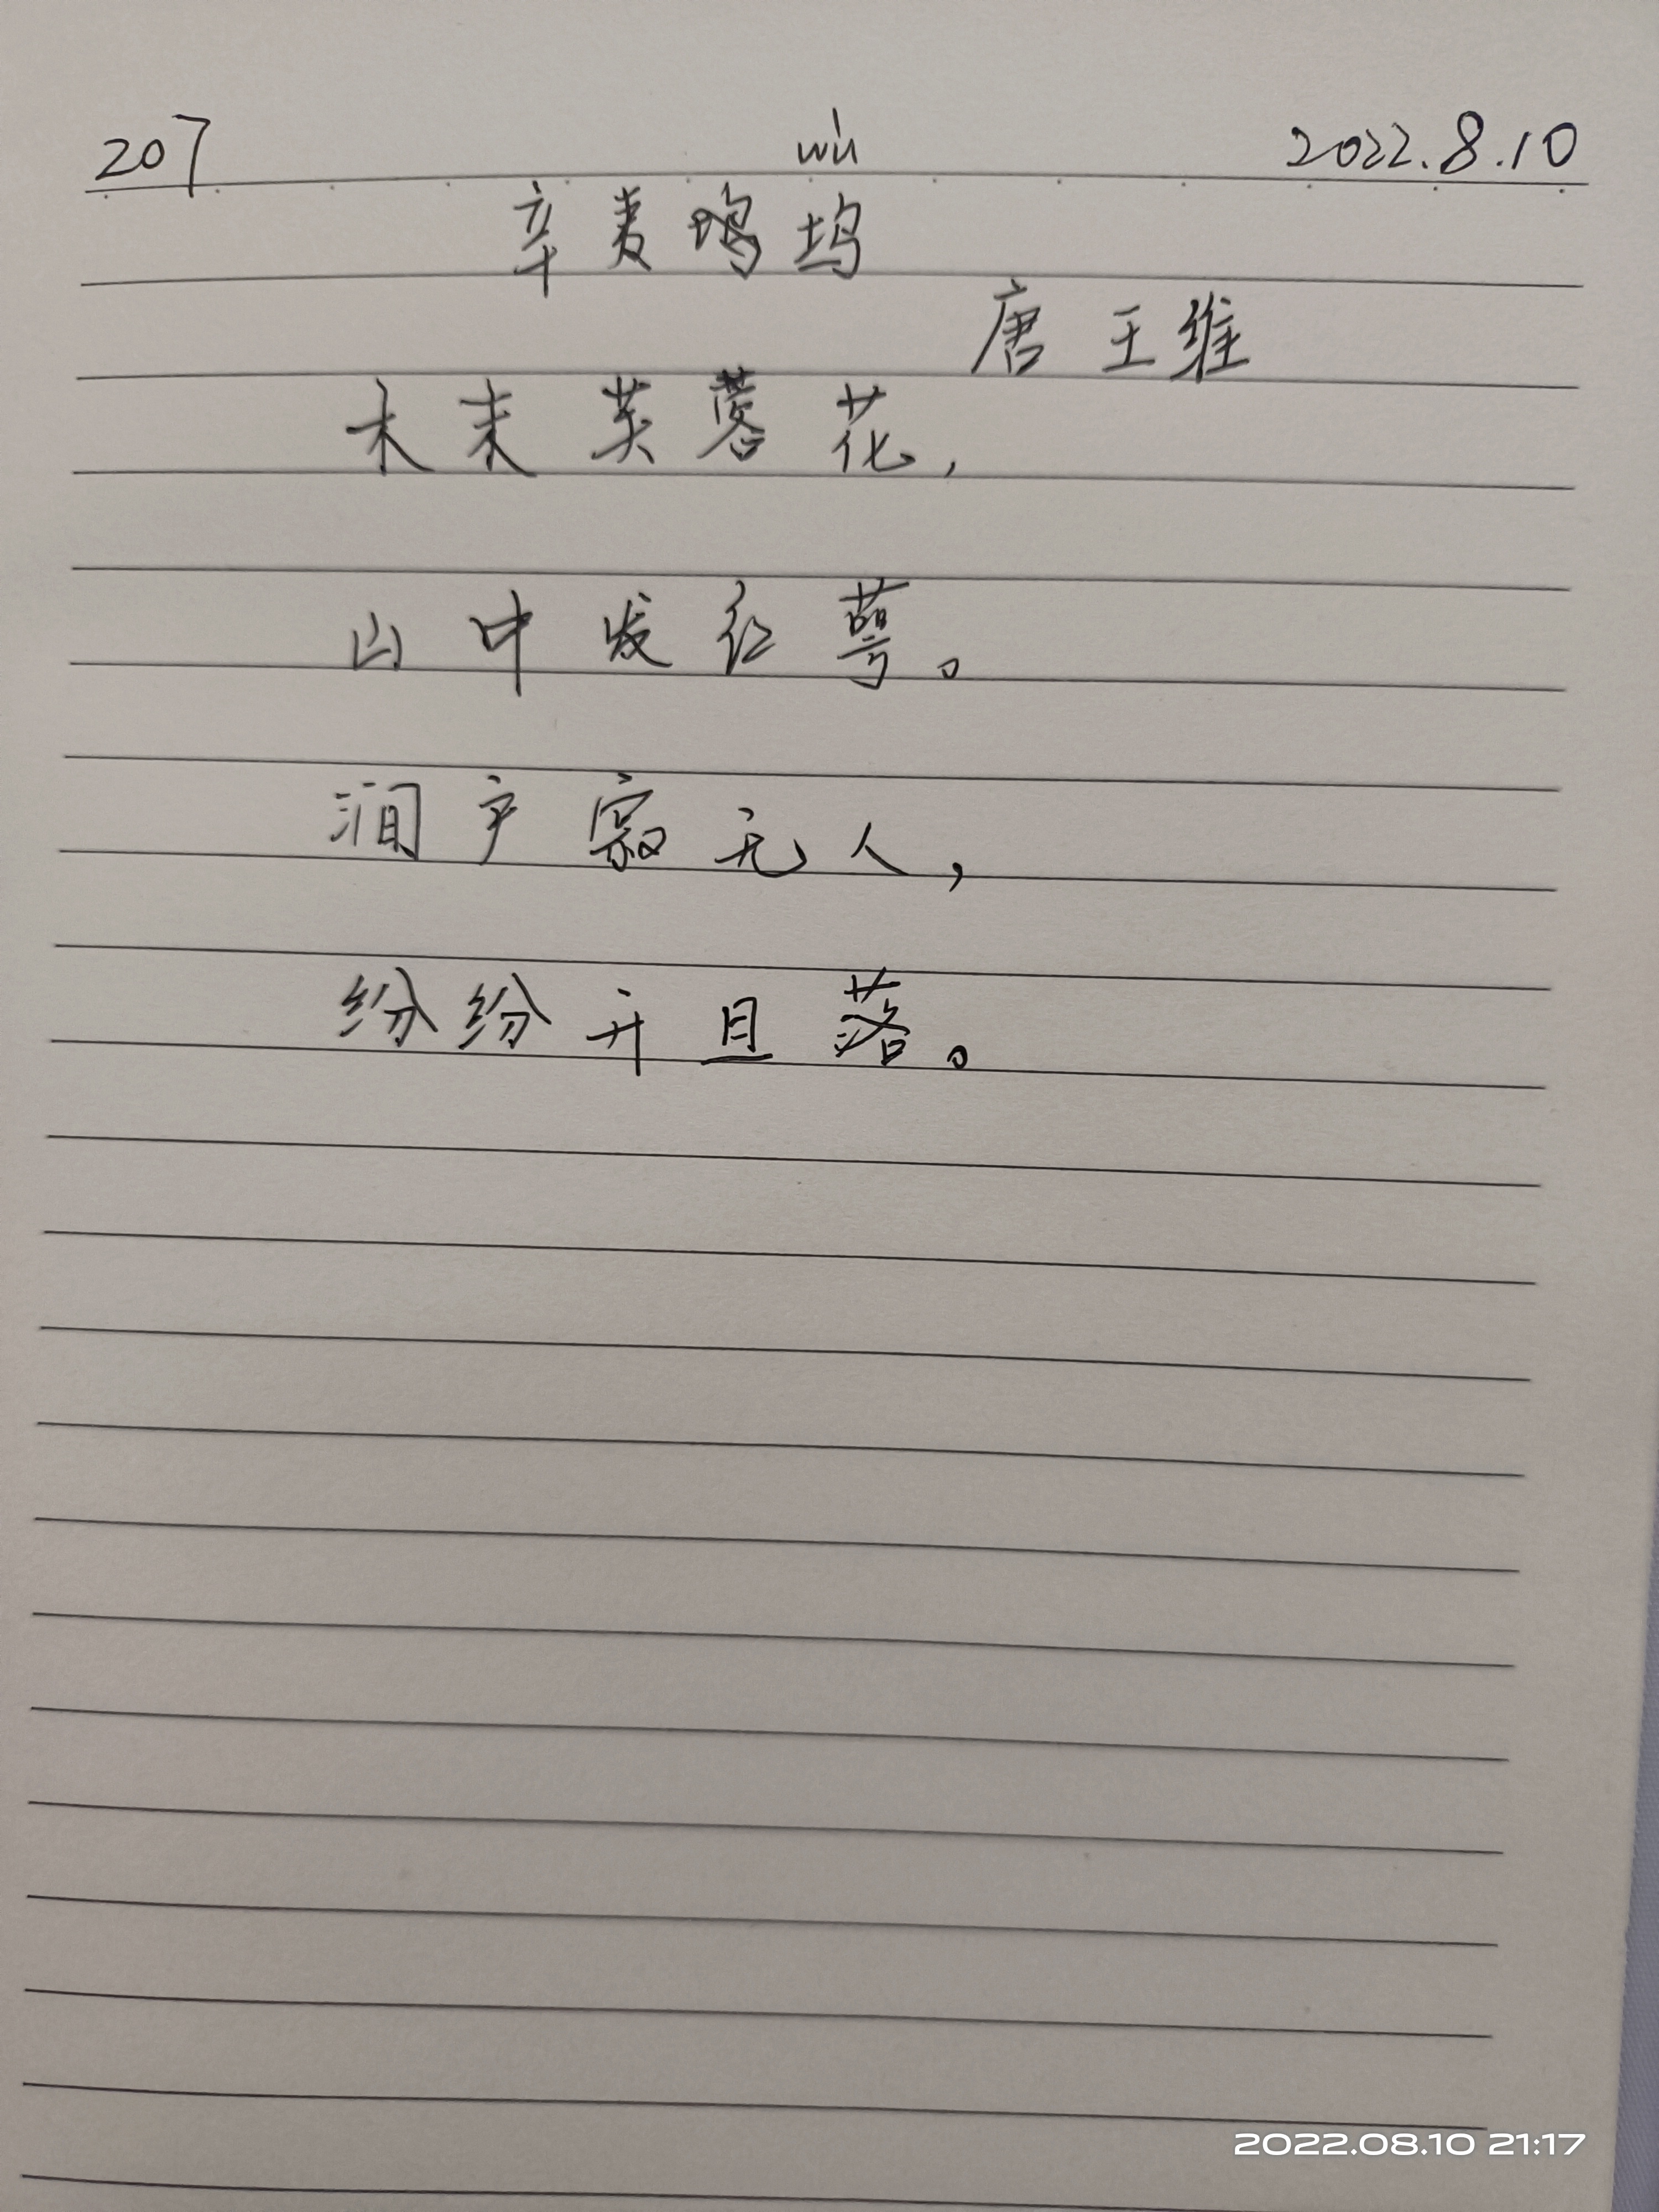 207 wù 2022.8.10
辛夷坞
唐 王维
木末芙蓉花，
山中发红萼。
涧户寂无人，
纷纷开且落。
2022.08.10 21:17